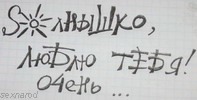 Sолнышко,
люблю тебя!
очень ...
sexnarod